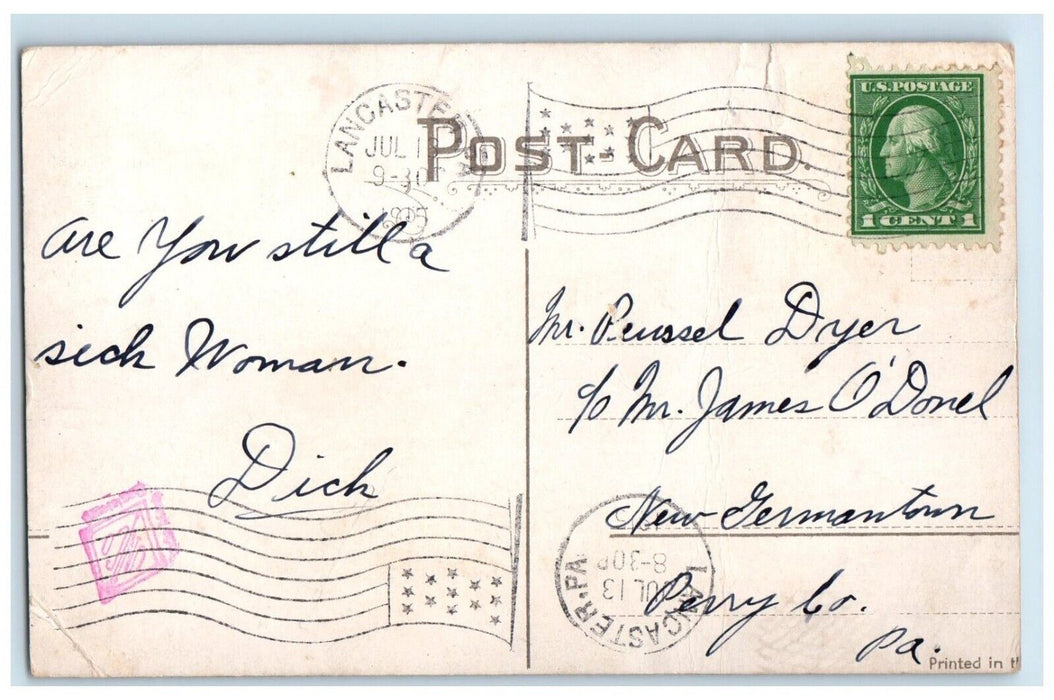 POST-CARD.
LANCASTER
JUL 1
9-30
1915
U.S. POSTAGE
1 CENT 1
are You still a
sick Woman.
Dick
Mr. Russel Dyer
c/o Mr. James O'Donel
New Germantown
Perry Co.
Pa.
LANCASTER, PA
JUL 13
8-30P
Printed in